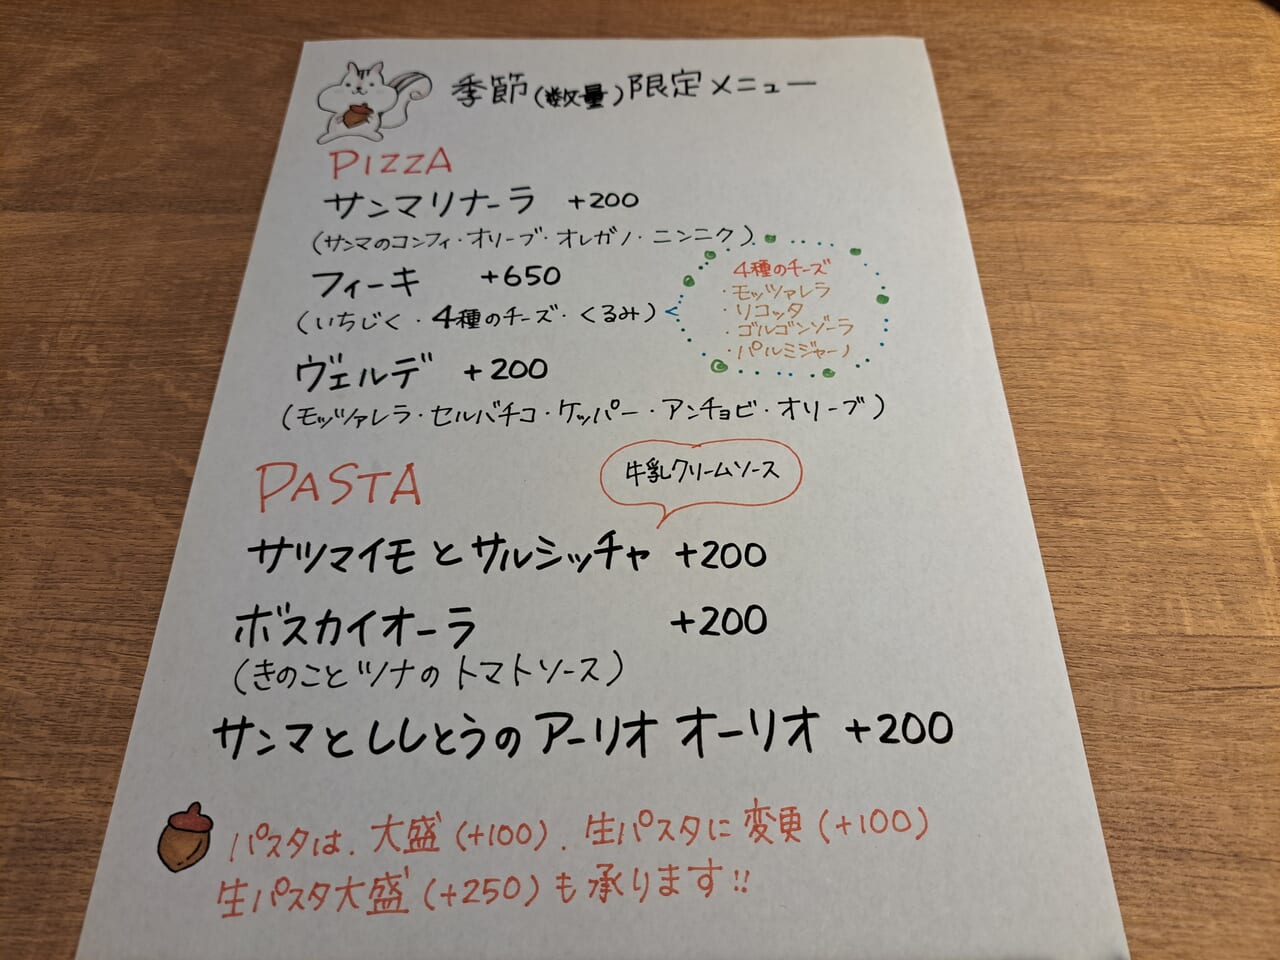 季節(数量)限定メニュー
PIZZA
サンマリナーラ +200
(サンマのコンフィ・オリーブ・オレガノ・ニンニク)
フィーキ +650
(いちじく・4種のチーズ・くるみ)
4種のチーズ
・モッツァレラ
・リコッタ
・ゴルゴンゾーラ
・パルミジャーノ
ヴェルデ +200
(モッツァレラ・セルバチコ・ケッパー・アンチョビ・オリーブ)
PASTA
牛乳クリームソース
サツマイモとサルシッチャ +200
ボスカイオーラ +200
(きのことツナのトマトソース)
サンマとししとうのアーリオ オーリオ +200
パスタは、大盛(+100)、生パスタに変更(+100)
生パスタ大盛(+250)も承ります!!